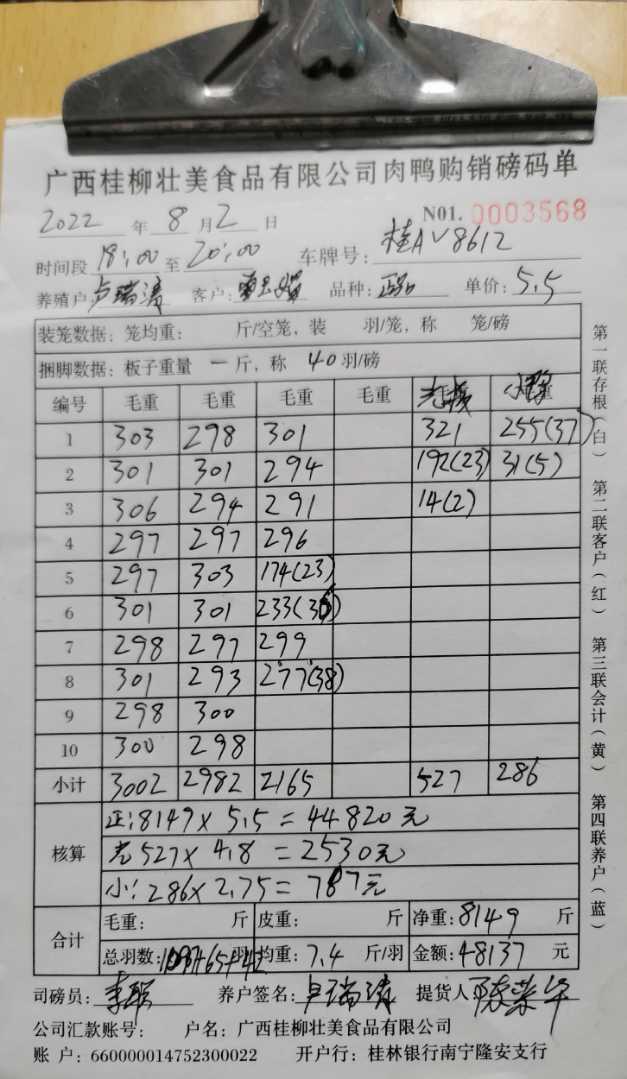 广西桂柳壮美食品有限公司肉鸭购销磅码单
2022 年 8 月 2 日 N01. 0003568
时间段 18:00 至 20:00 车牌号: 桂AV8612
养殖户: 卢瑞清 客户: 品种: 正品 单价: 5.5
装笼数据: 笼均重: 斤/空笼, 装 羽/笼, 称 笼/磅
捆脚数据: 板子重量 一 斤, 称 40 羽/磅
编号 毛重 毛重 毛重 毛重
1 303 298 301 321 255(37)
2 301 301 294 192(23) 31(5)
3 306 294 291 14(2)
4 297 297 296
5 297 303 174(23)
6 301 301
7 298 297 299
8 301 293 277(38)
9 298 300
10 300 298
小计 3002 2982 2165 527 286
核算 正:8149×5.5=44820元
光527×4.8=2530元
小:286×2.75=787元
合计 毛重: 斤 皮重: 斤 净重: 8149 斤
总羽数: 羽 均重: 7.4 斤/羽 金额: 48137 元
司磅员: 养户签名: 卢瑞清 提货人: 陈荣华
公司汇款账号: 户名: 广西桂柳壮美食品有限公司
账 户: 660000014752300022 开户行: 桂林银行南宁隆安支行
第一联存根(白) 第二联客户(红) 第三联会计(黄) 第四联养户(蓝)